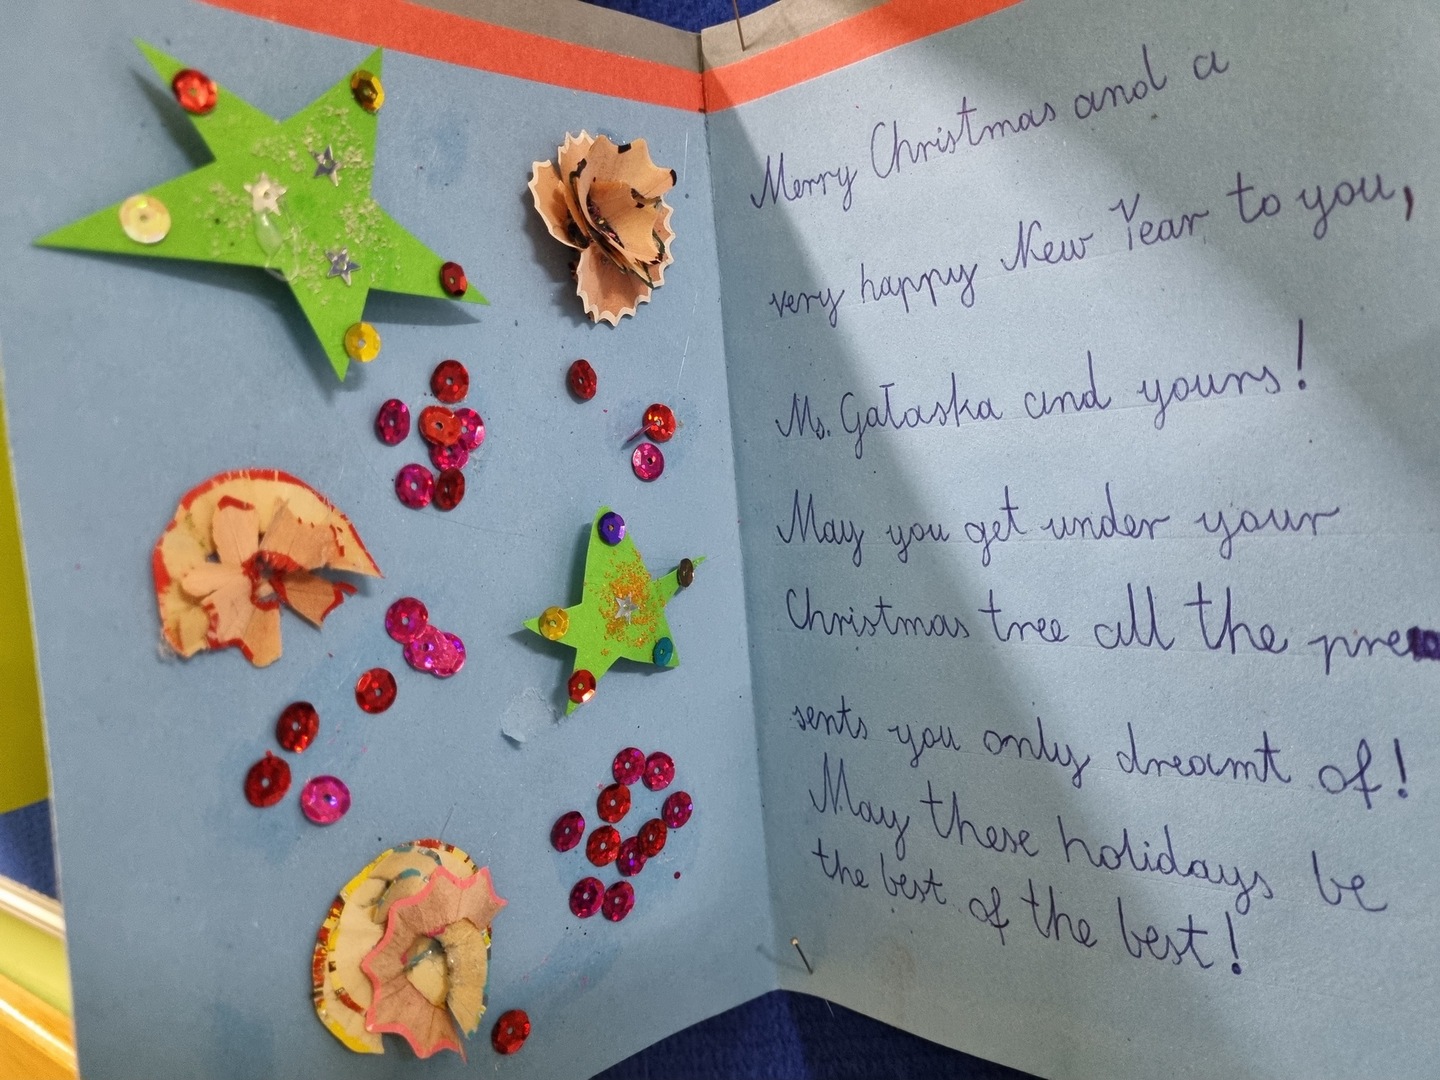 Merry Christmas and a
very happy New Year to you,
Ms. Gałaska and yours!
May you get under your
Christmas tree all the pre
sents you only dreamt of!
May these holidays be
the best of the best!